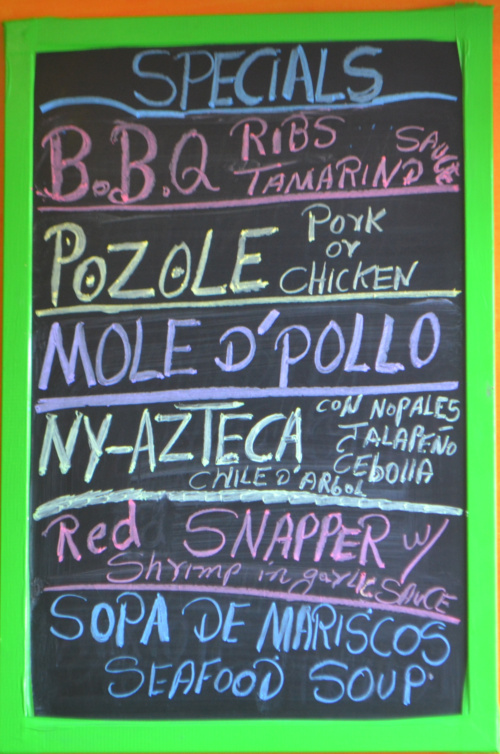 SPECIALS
B.B.Q RIBS
TAMARIND SAUCE
POZOLE Pork
or
CHICKEN
MOLE D'POLLO
NY-AZTECA CON NOPALES
JALAPEÑO
CEbollA
CHILE D'ARboL
Red SNAPPER w/
Shrimp in garlic SAUCE
SOPA DE MARISCOS
SEAFOOD SOUP.